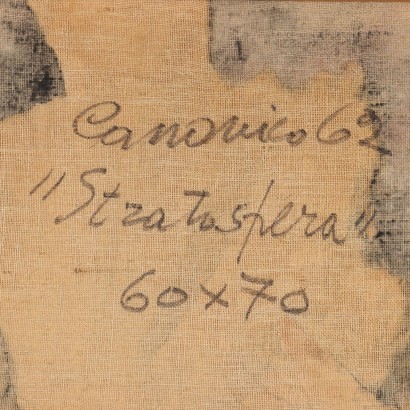 Canonico 62
"Stratosfera".
60x70